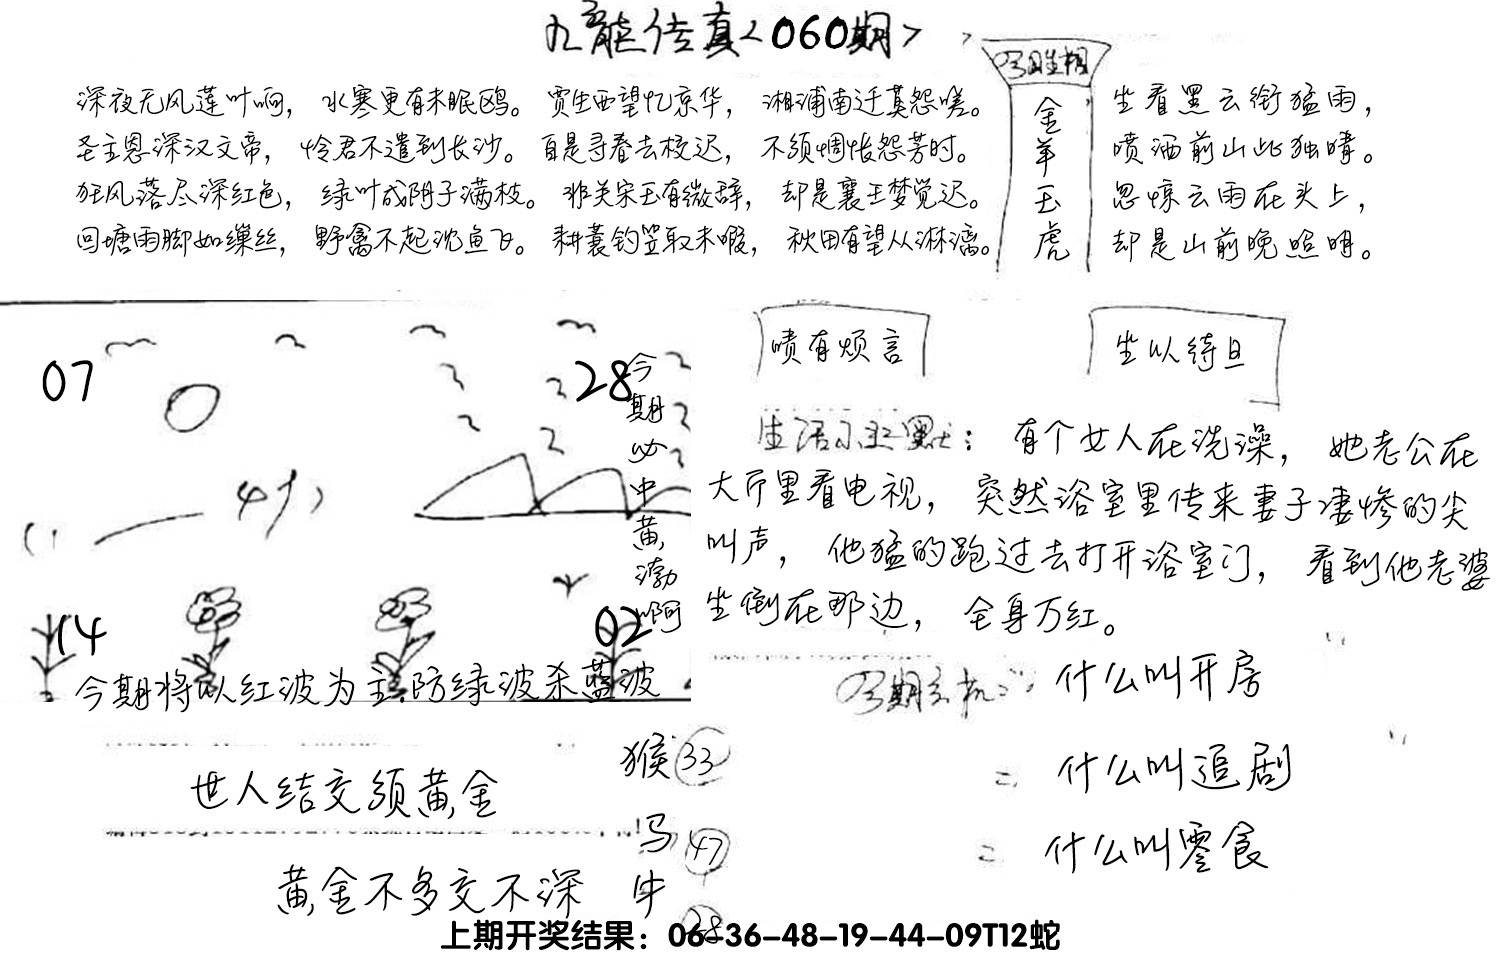 九龍传真<060期>
深夜无风莲叶响，水寒更有未眠鸥。贾生西望忆京华，湘浦南迁莫怨嗟。
圣主恩深汉文帝，怜君不遣到长沙。自是寻春去校迟，不须惆怅怨芳时。
狂风落尽深红色，绿叶成阴子满枝。非关宋玉有微辞，却是襄王梦觉迟。
回塘雨脚如缫丝，野禽不起沈鱼飞。耕蓑钓笠取未暇，秋田有望从淋漓。
金羊玉虎
坐看黑云衔猛雨，
喷洒前山此独晴。
忽惊云雨在头上，
却是山前晚照明。
07
28
14
02
今期必中黄渤啊
今期将以红波为主.防绿波杀蓝波
啧有烦言
坐以待旦
生活幽默：有个女人在洗澡，她老公在
大厅里看电视，突然浴室里传来妻子凄惨的尖
叫声，他猛的跑过去打开浴室门，看到他老婆
坐倒在那边，全身万红。
什么叫开房
什么叫追剧
什么叫零食
世人结交须黄金
黄金不多交不深
猴 33
马 47
牛 28
上期开奖结果：06-36-48-19-44-09T12蛇